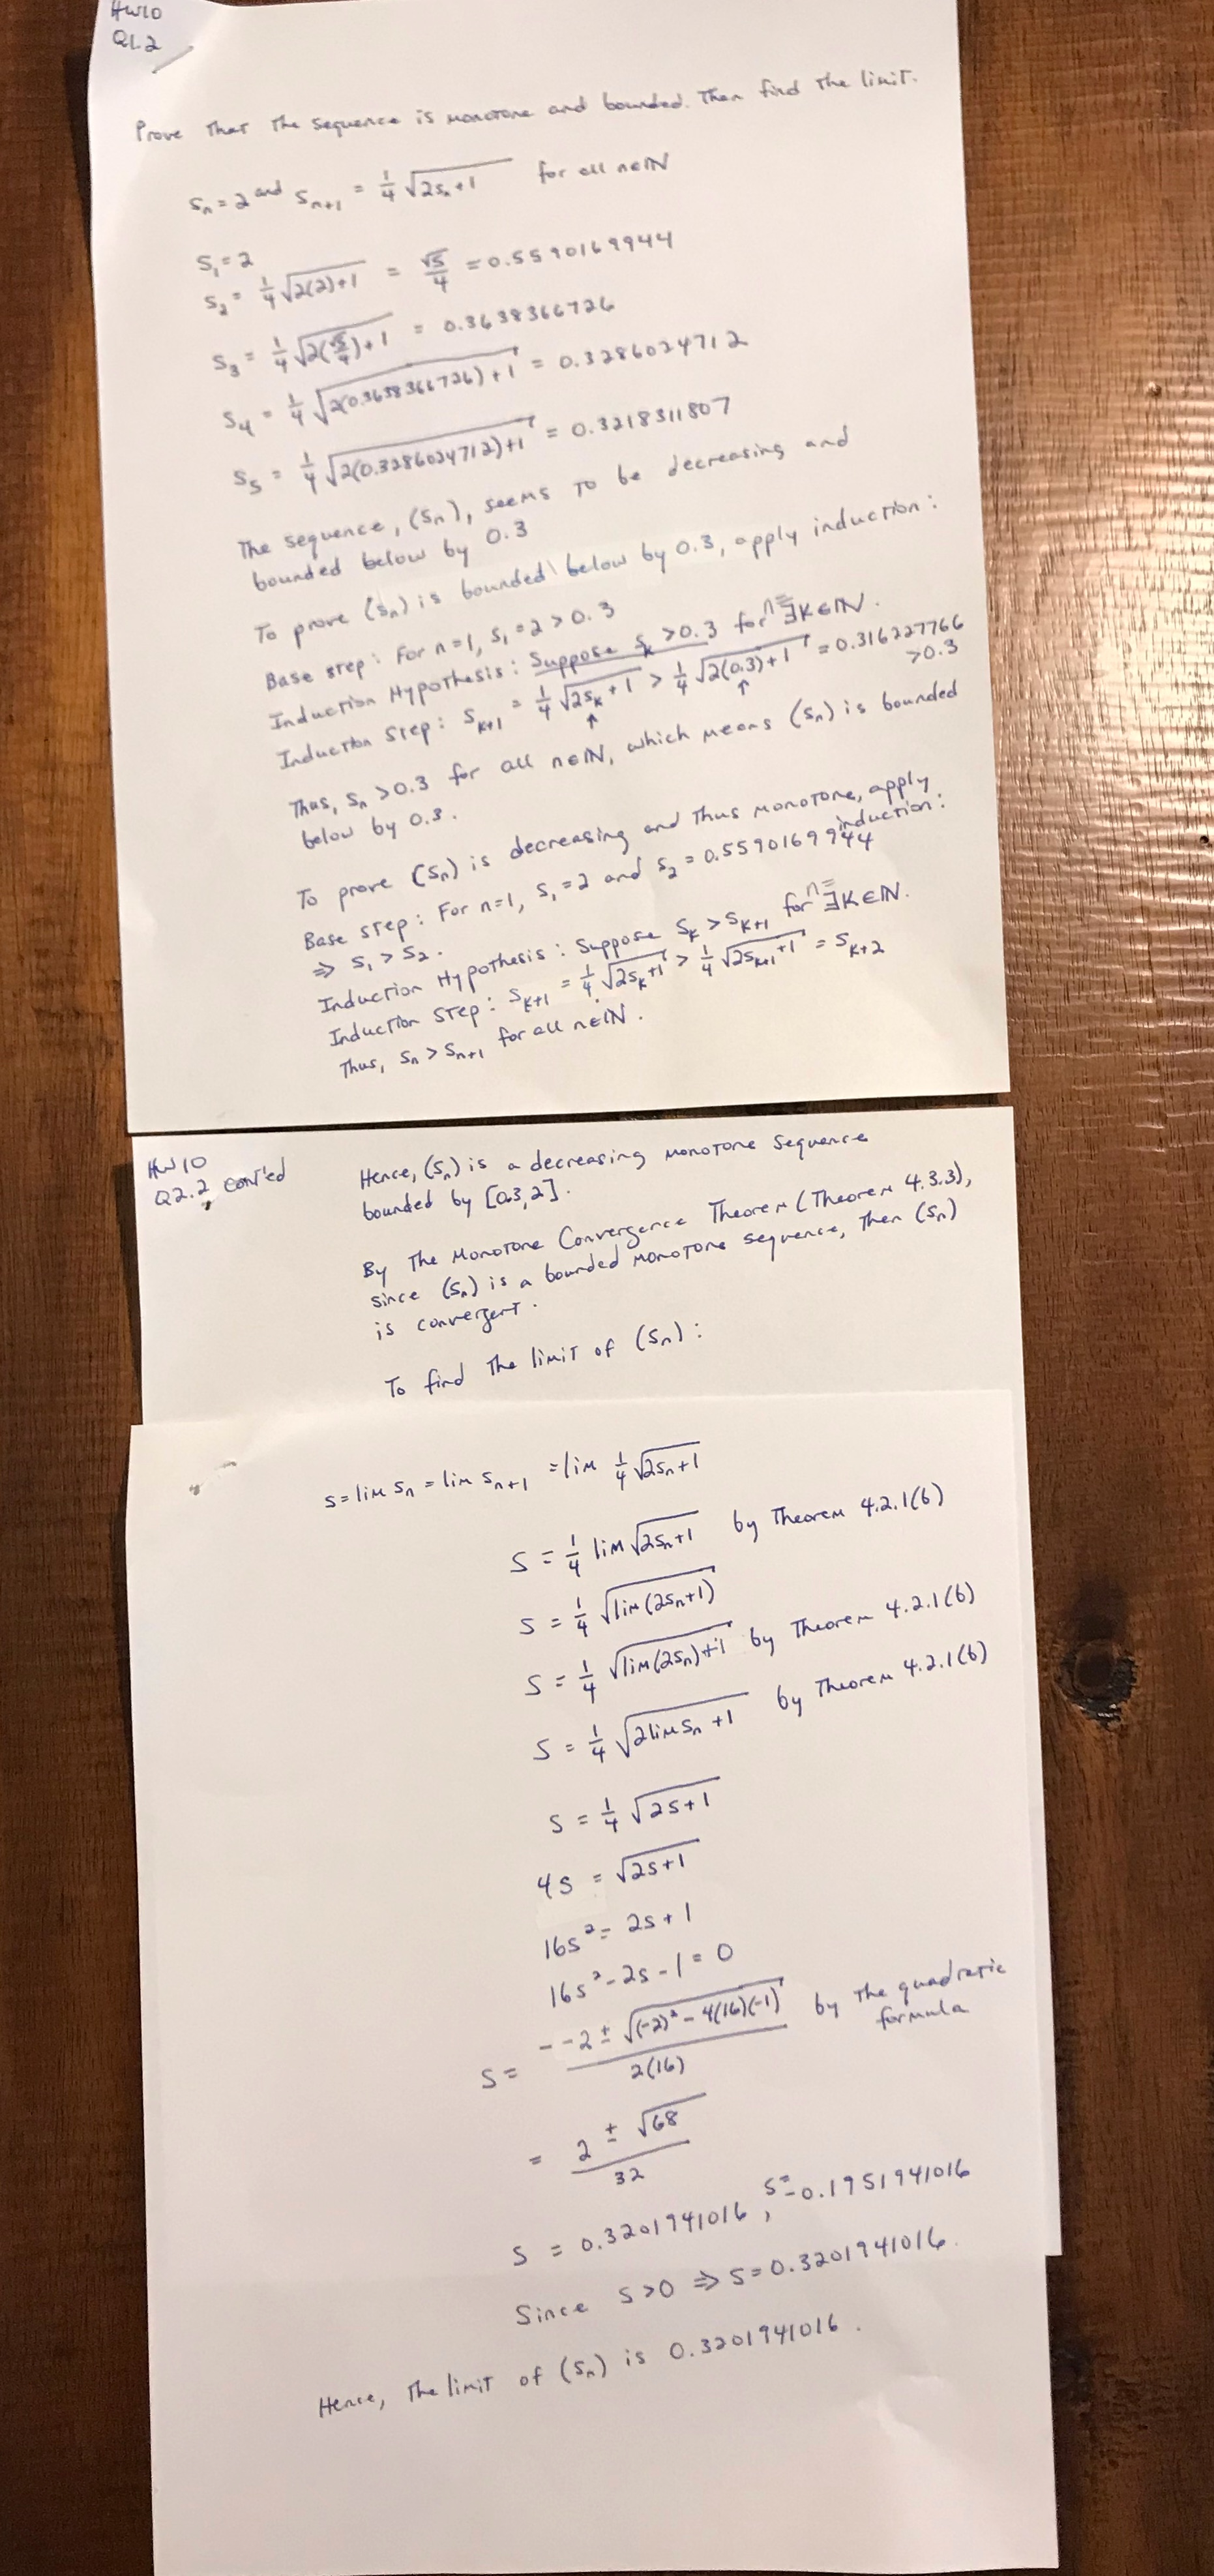 HW10
Q1.2
Prove that the sequence is monotone and bounded. Then find the limit.
Sₙ = 2 and Sₙ₊₁ = 1/4 √(2Sₙ+1) for all n∈ℕ
S₁ = 2
S₂ = 1/4 √(2(2)+1) = √5/4 = 0.5590169944
S₃ = 1/4 √(2(√5/4)+1) = 0.3638366726
S₄ = 1/4 √(2(0.3638366726)+1) = 0.3286024712
S₅ = 1/4 √(2(0.3286024712)+1) = 0.3218311807
The sequence, (Sₙ), seems to be decreasing and
bounded below by 0.3
To prove (Sₙ) is bounded below by 0.3, apply induction:
Base step: For n=1, S₁=2 > 0.3
Induction Hypothesis: Suppose Sₖ > 0.3 for n = ∃K∈ℕ.
Induction Step: Sₖ₊₁ = 1/4 √(2Sₖ+1) > 1/4 √(2(0.3)+1) = 0.316227766
>0.3
↑ ↑
Thus, Sₙ > 0.3 for all n∈ℕ, which means (Sₙ) is bounded
below by 0.3.
To prove (Sₙ) is decreasing and thus monotone, apply
induction:
Base step: For n=1, S₁=2 and S₂ = 0.5590169944
⇒ S₁ > S₂.
Induction Hypothesis: Suppose Sₖ > Sₖ₊₁ for n = ∃K∈ℕ.
Induction Step: Sₖ₊₁ = 1/4 √(2Sₖ+1) > 1/4 √(2Sₖ₊₁+1) = Sₖ₊₂
Thus, Sₙ > Sₙ₊₁ for all n∈ℕ.
HW10
Q2.2 cont'ed
Hence, (Sₙ) is a decreasing monotone sequence
bounded by [0.3,2].
By the Monotone Convergence Theorem (Theorem 4.3.3),
since (Sₙ) is a bounded monotone sequence, then (Sₙ)
is convergent.
To find the limit of (Sₙ):
S = lim Sₙ = lim Sₙ₊₁ = lim 1/4 √(2Sₙ+1)
S = 1/4 lim √(2Sₙ+1) by Theorem 4.2.1(b)
S = 1/4 √(lim(2Sₙ+1))
S = 1/4 √(lim(2Sₙ)+1) by Theorem 4.2.1(b)
S = 1/4 √(2limSₙ+1) by Theorem 4.2.1(b)
S = 1/4 √(2S+1)
4S = √(2S+1)
16S² = 2S+1
16S²-2S-1 = 0
S = (--2 ± √((-2)²-4(16)(-1)))/2(16) by the quadratic
formula
= (2 ± √68)/32
S = 0.3201941016, S=-0.1951941016
Since S>0 ⇒ S=0.3201941016.
Hence, the limit of (Sₙ) is 0.3201941016.